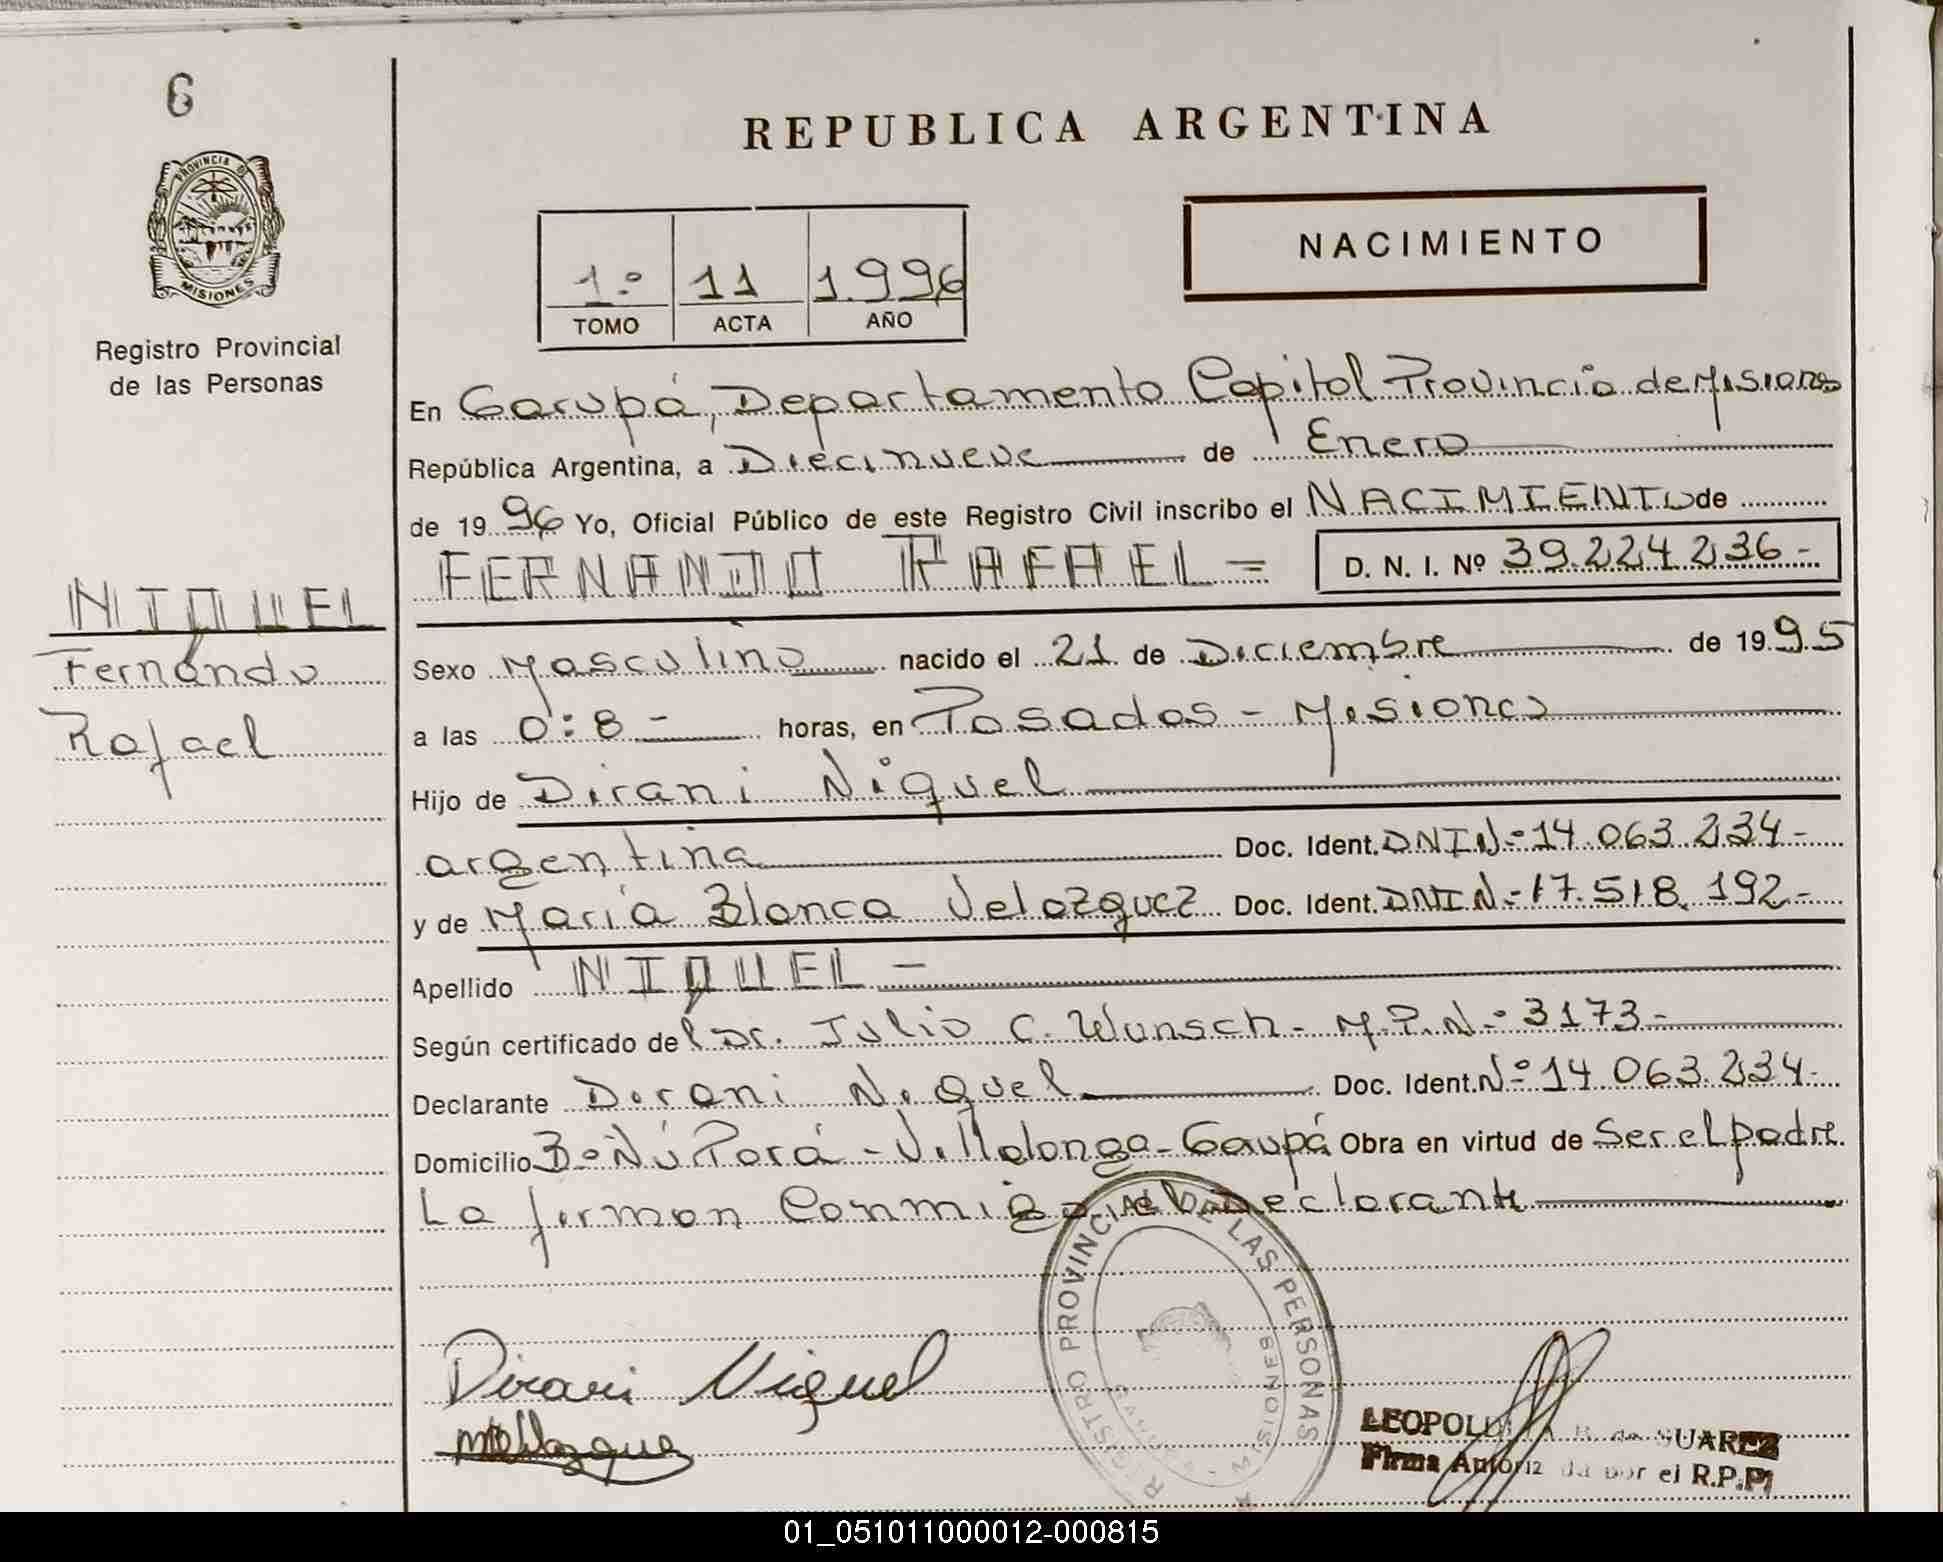 6
PROVINCIA DE
MISIONES
Registro Provincial
de las Personas
NIQUEL
Fernando
Rafael
REPUBLICA ARGENTINA
1º 11 1.996
TOMO ACTA AÑO
NACIMIENTO
En Garupá, Departamento Capital Provincia de Misiones
República Argentina, a Diecinueve de Enero
de 1996 Yo, Oficial Público de este Registro Civil inscribo el NACIMIENTO de
FERNANDO RAFAEL =
D. N. I. Nº 39.224.236-
Sexo Masculino nacido el 21 de Diciembre de 1995
a las 0:8 - horas, en Posadas - Misiones
Hijo de Dirani Niquel
argentina Doc. Ident. DNI Nº 14.063.234-
y de María Blanca Velazquez Doc. Ident. DNI N- 17.518.192-
Apellido NIQUEL -
Según certificado del Dr. Julio C. Wunsch - M.P.Nº 3173-
Declarante Dirani Niquel Doc. Ident. Nº 14.063.234-
Domicilio Bº Ñú Porá - Villalonga - Garupá Obra en virtud de Ser el padre.
La firman Conmigo el Declarante
Dirani Niquel
REGISTRO PROVINCIAL DE LAS PERSONAS
MISIONES
SUAREZ
Firma Autorizada por el R.P.P.
01_051011000012-000815